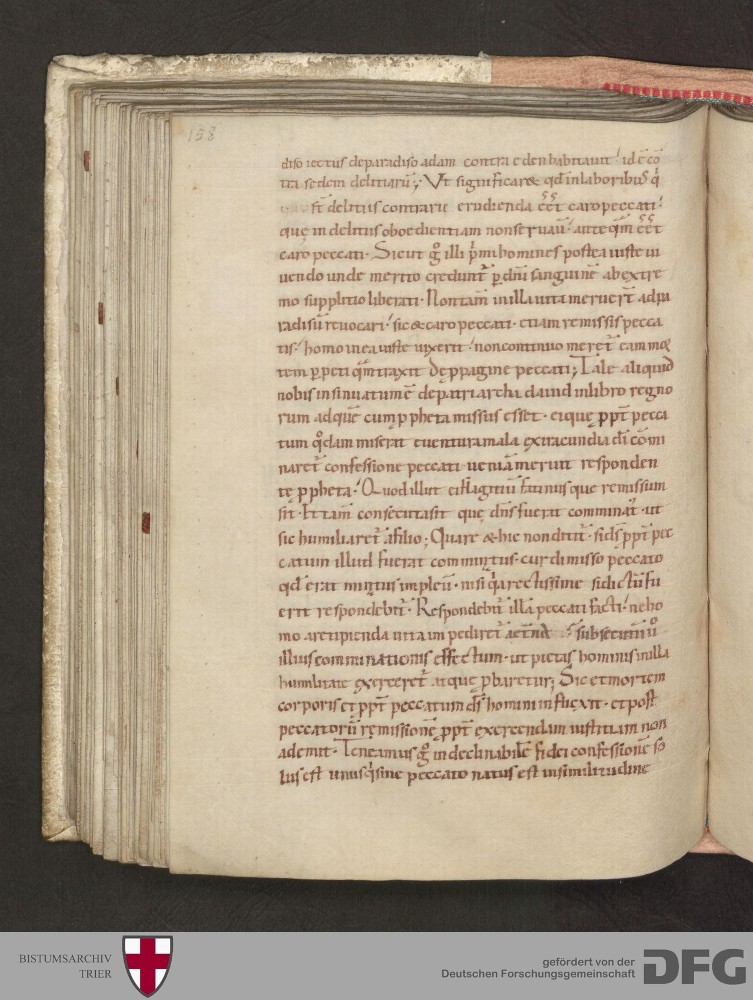 158
diso iectus deparadiso adam contra eden habitauit ! id ē cō
tra sedem delitiarū ; Vt significar& qd̄ inlaboribus q̇
sr̄t delitiis contrarii erudienda eēt caro peccati !
quę in delitiis oboedientiam nonseruau̅ ! anteq̄m eēt
caro peccati · Sicut gͦ illi p̍mi homines postea iuste ui
uendo unde merito creduntr̄ p dn̄i sanguinē abextre
mo supplitio liberati · Nontam̄ inilla uita meruer̄t adpa
radisū reuocari ! sic & caro peccati · etiam remissis pecca
tis ! homo inea iuste uixerit ! noncontinuo meretr̄ eam mor
tem ppeti q̄m traxit de ppagine peccati ; Tale aliquid
nobis insinuatum ē depatriarcha dauid inlibro regno
rum adquē cum ppheta missus esset · eique ppt̄ pecca
tum qͦdam miserat euentura mala ex iracundia dī comi
naretr̄ confessione peccati ueniā meruit responden
te ppheta ! Quod illut ei flagitiū facinusque remissum
sit · Et tam̄ consecuta sit que dn̄s fuerat comminatꝰ · ut
sic humiliaretr̄ afilio ; Quare & hic non ditit̄ · si ds̄ ppt̄ pec
catum illud fuerat comminatus · cur dimisso peccato
qd̄ erat minatus impleu̅ · nisi q̍a rectissime si dictū fu
erit respondebit̄ · Respondebit̄ illā peccati facti ! ne ho
mo apercipienda uita inpediretr̄ aet̄na · subsecutum uͦ
illius comminationis effectum · ut pietas hominis inilla
humilitate exerceretr̄ atque pbaretur ; Sic et mortem
corporis et ppt̄ peccatum ds̄ homini inflixit · et post
peccatorū remissionē ppt̄ exercendam iustitiam non
ademit · Teneamus gͦ indeclinabilē fidei confessionē so
lus est unus q̍ sine peccato natus est insimilitudine
BISTUMSARCHIV
TRIER
gefördert von der
Deutschen Forschungsgemeinschaft
DFG